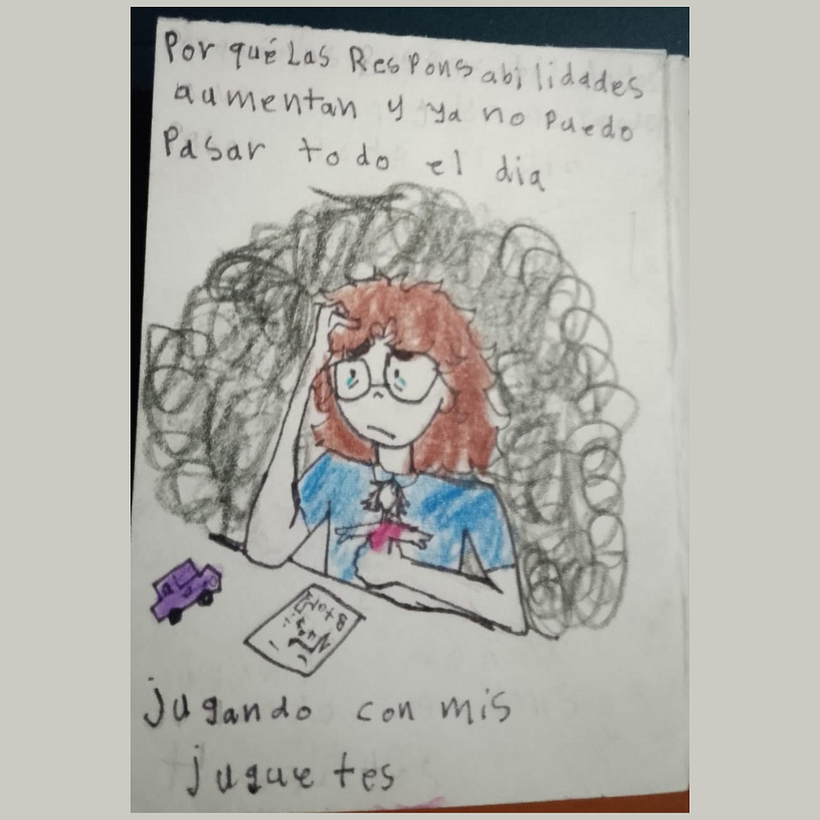 Por qué Las Responsabilidades
aumentan y ya no Puedo
Pasar todo el dia
jugando con mis
juguetes